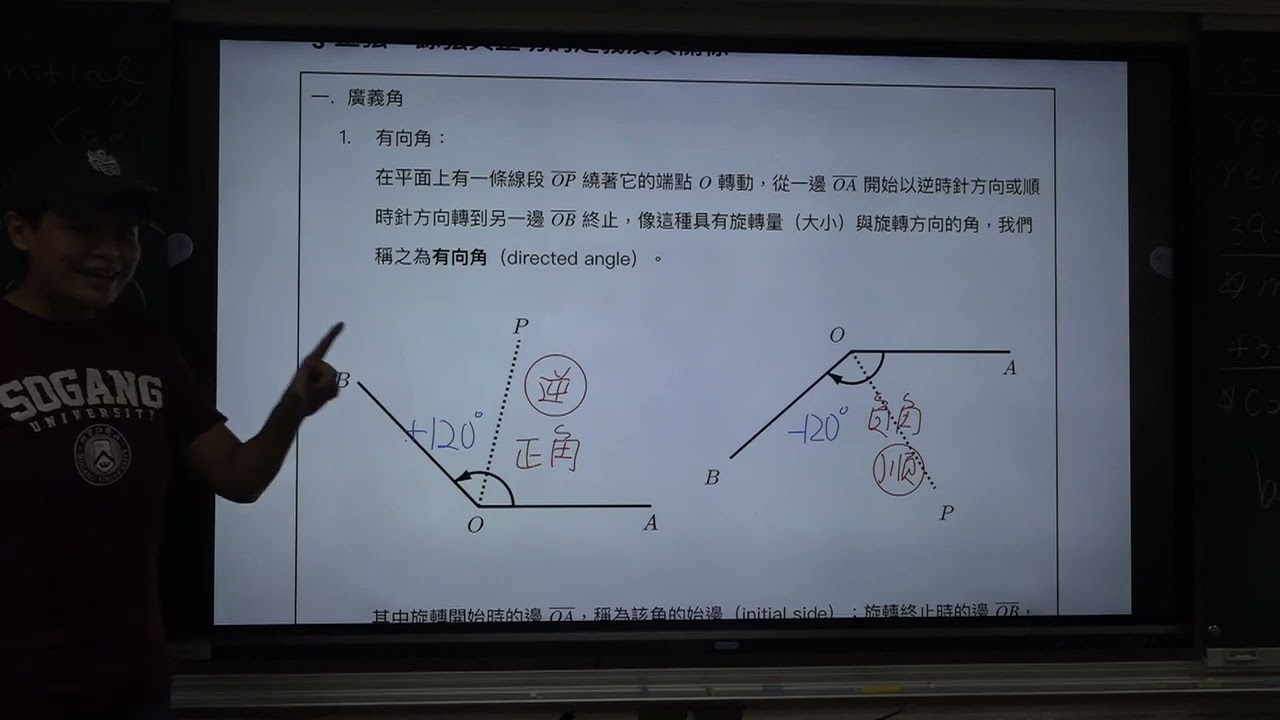 一. 廣義角
1. 有向角：
在平面上有一條線段 OP 繞著它的端點 O 轉動，從一邊 OA 開始以逆時針方向或順
時針方向轉到另一邊 OB 終止，像這種具有旋轉量（大小）與旋轉方向的角，我們
稱之為有向角（directed angle）。
P
逆
B
+120°
正角
O
A
O
A
-120°
負角
順
B
P
其中旋轉開始時的邊 OA，稱為該角的始邊（initial side）；旋轉終止時的邊 OB，
SOGANG
UNIVERSITY
initial